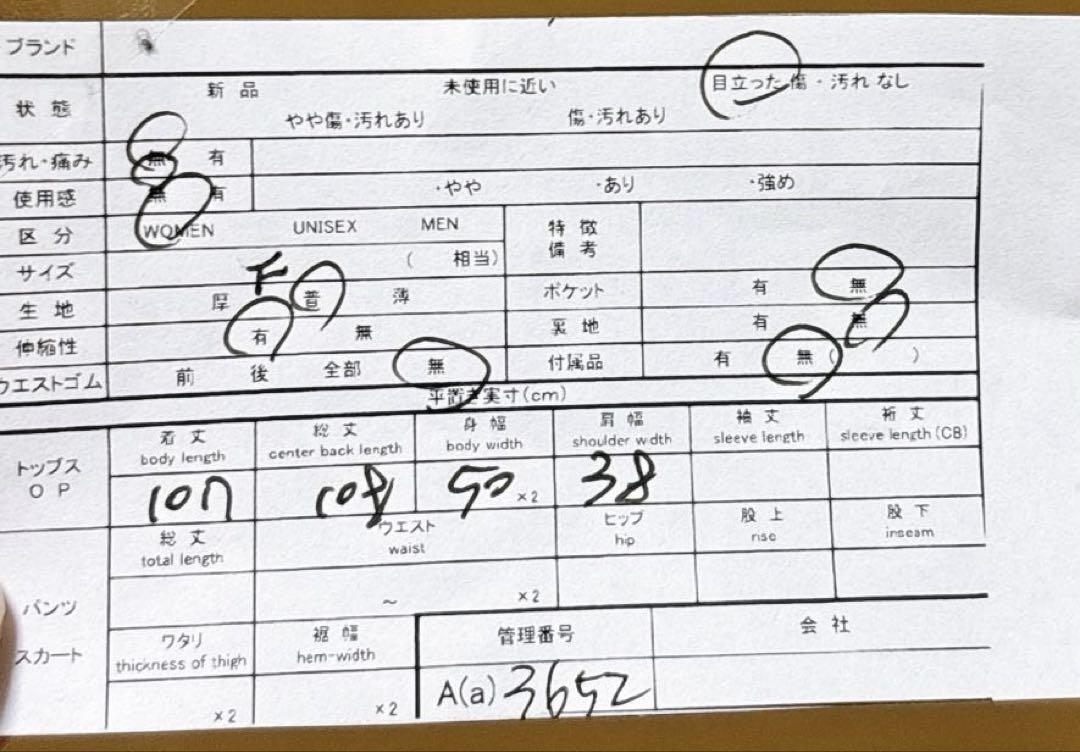 ブランド
状態 新品 未使用に近い 目立った傷・汚れなし
やや傷・汚れあり 傷・汚れあり
汚れ・痛み 無 有
使用感 無 有 ・やや ・あり ・強め
区分 WOMEN UNISEX MEN 特徴
備考
サイズ F ( 相当)
生地 厚 普 薄 ポケット 有 無
伸縮性 有 無 裏地 有 無
ウエストゴム 前 後 全部 無 付属品 有 無 ( )
平置き実寸(cm)
トップス
OP
着丈 総丈 身幅 肩幅 袖丈 裄丈
body length center back length body width shoulder width sleeve length sleeve length (CB)
107 108 50 ×2 38
パンツ
スカート
総丈 ウエスト ヒップ 股上 股下
total length waist hip rise inseam
~ ×2
ワタリ 裾幅 管理番号 会社
thickness of thigh hem-width
×2 ×2 A(a) 3652